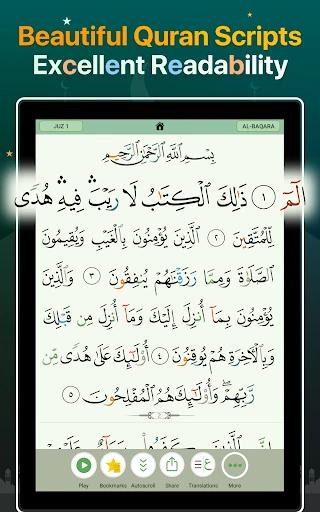 Beautiful Quran Scripts
Excellent Readability
JUZ 1
AL-BAQARA
بِسْمِ ٱللَّهِ ٱلرَّحْمَٰنِ ٱلرَّحِيمِ
الٓمٓ ١ ذَٰلِكَ ٱلْكِتَٰبُ لَا رَيْبَ ۛ فِيهِ ۛ هُدًى
لِّلْمُتَّقِينَ ٢ ٱلَّذِينَ يُؤْمِنُونَ بِٱلْغَيْبِ وَيُقِيمُونَ
ٱلصَّلَوٰةَ وَمِمَّا رَزَقْنَٰهُمْ يُنفِقُونَ ٣ وَٱلَّذِينَ
يُؤْمِنُونَ بِمَآ أُنزِلَ إِلَيْكَ وَمَآ أُنزِلَ مِن قَبْلِكَ
وَبِٱلْـَٔاخِرَةِ هُمْ يُوقِنُونَ ٤ أُو۟لَٰٓئِكَ عَلَىٰ هُدًى مِّن
رَّبِّهِمْ ۖ وَأُو۟لَٰٓئِكَ هُمُ ٱلْمُفْلِحُونَ ٥
2
إِنَّ ٱلَّذِينَ كَفَرُوا۟ سَوَآءٌ عَلَيْهِمْ
Play
Bookmarks
Autoscroll
Share
Translations
More